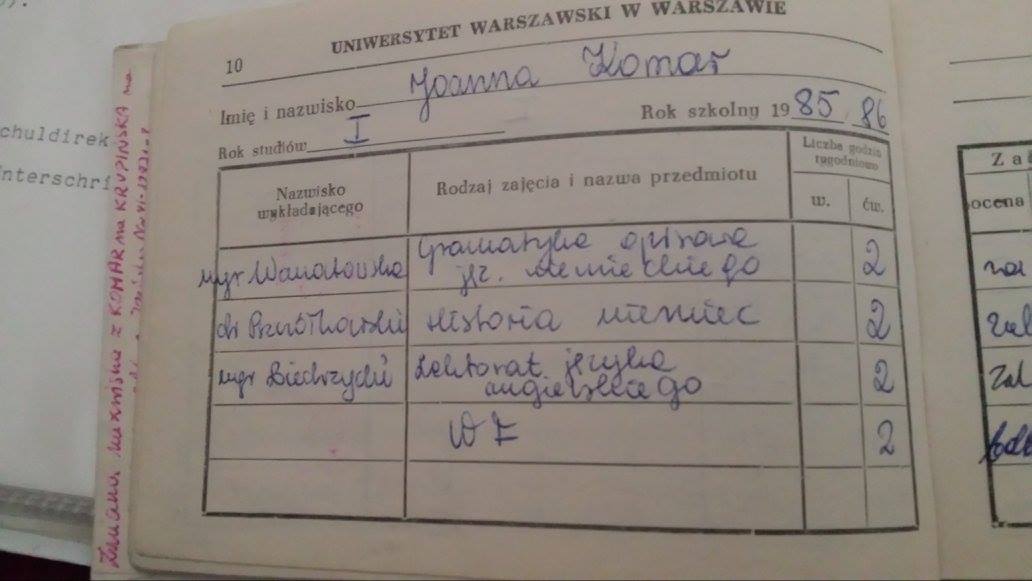 chuldirek
nterschri
Zmiana nazwiska z KOMAR na KRUPIŃSKA na
UNIWERSYTET WARSZAWSKI W WARSZAWIE
10
Imię i nazwisko Joanna Komar
Rok studiów I Rok szkolny 1985/86
Nazwisko wykładającego
Rodzaj zajęcia i nazwa przedmiotu
Liczba godzin tygodniowo
w. ćw.
mgr Gramatyka opisowa
jęz. niemieckiego 2
dr Historia niemiec 2
mgr Lektorat języka
angielskiego 2
WF 2
ocena
zal
zal